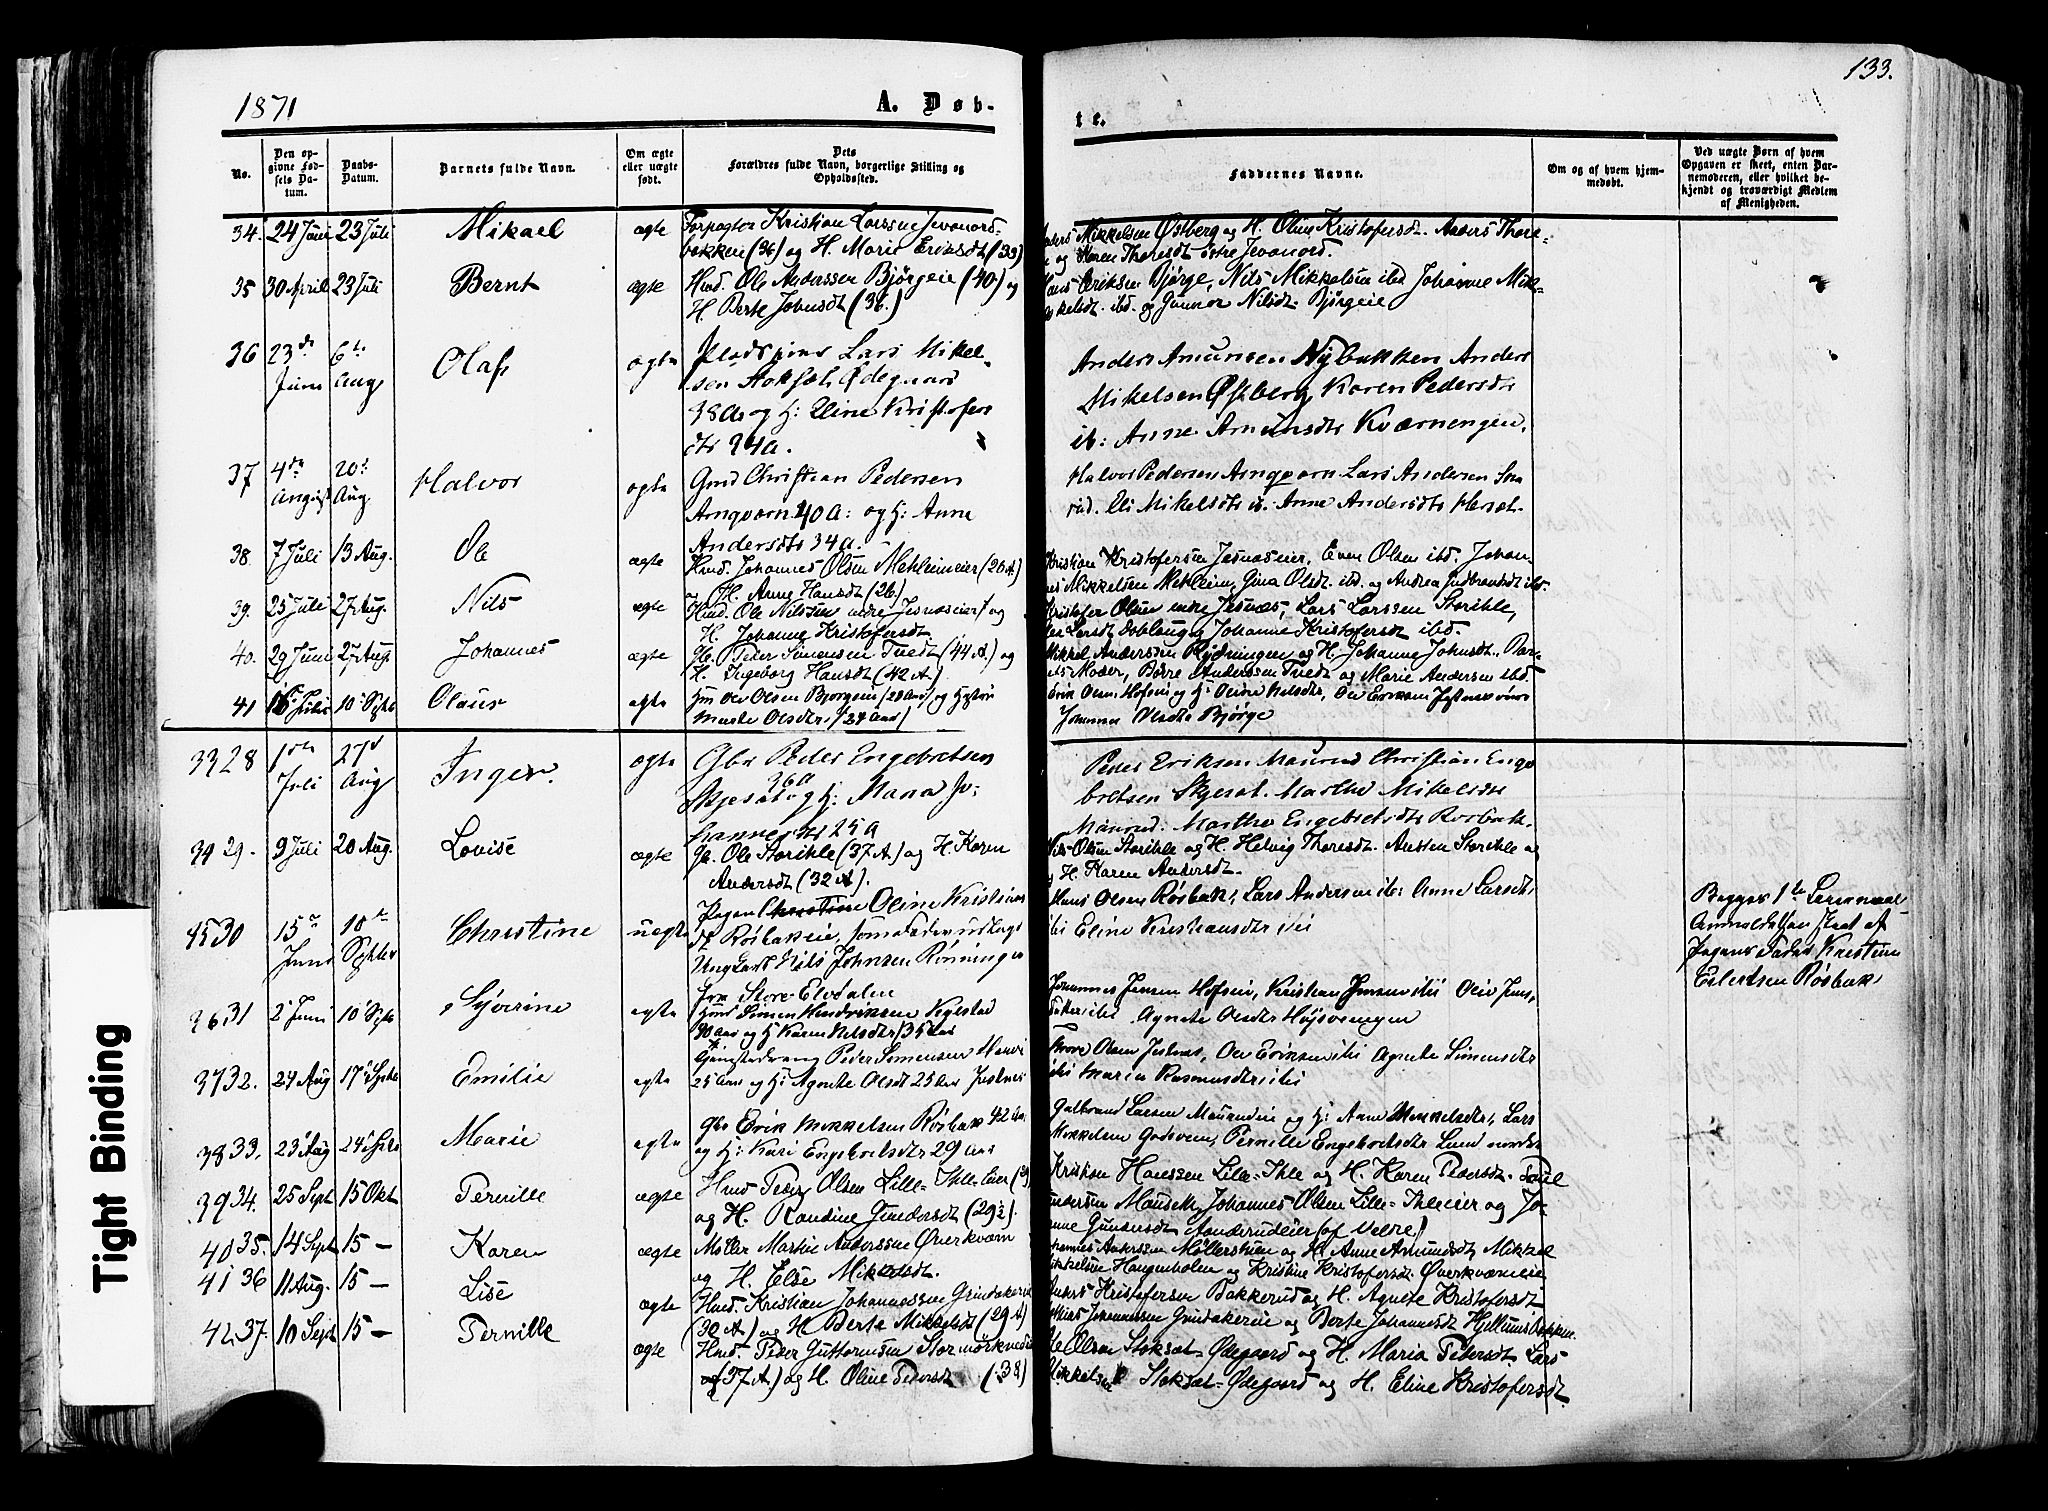 133.
1871
A. Døb-
te.
No.
Den op-
givne Fød-
sels Da-
tum.
Daabs-
Datum.
Barnets fulde Navn.
Om ægte
eller uægte
født.
Dets
Forældres fulde Navn, borgerlige Stilling og
Opholdssted.
Faddernes Navne.
Om og af hvem hjem-
medøbt.
Ved uægte Børn af hvem
Opgaven er skeet, enten Bar-
nemoderen, eller hvilket be-
kjendt og troværdigt Medlem
af Menigheden.
34. 24 Juni 23 Juli Mikael ægte Forpagter Kristian Larssen
bakken (36) og H. Marie Eriksdt (33)
Mikkelsen Østberg og H. Oline Kristofersdt. Anders Thore-
og Karen Thoresdt
35 30 April 23 Juli Bernt ægte Hmd. Ole Anderssen Bjørgeie (40) og
H. Berte Johnsdt (36.)
Eriksen Bjørge, Nils Mikkelsen ibd Johanne Mik-
kelsdt. ibd. og Gunnor Nilsdt. Bjørgeie
36 23de Juni 6te Aug Olaf ægte Lars Mikel-
sen Stoksæt Ødegaard
38 A og H: Eline Kristofers
dtr 24 a.
Anders Amunsen Nybakken Anders
Mikelsen Østberg, Karen Pedersdtr
ib: Anne Amunsdtr Kværnengen.
37 4de August 20de Aug. Halvor ægte Gmd Christian Pedersen
Amqværn 40 a: og H: Anne
Andersdtr 34 a.
Halvor Pedersen Amqværn Lars Andersen
Eli Mikelsdtr ib. Anne Andersdtr
38. 7 Juli 13 Aug. Ole ægte Hmd. Johannes Olsen Mehlumeier (26 A)
og H. Anne Hansdt (26)
Kristian Kristofersen Jesnæseier, Even Olsen ibd. Johan-
nes Mikkelsen Mehlum, Gina Olsdt. ibd. og Andrea Gudbrandsdt ibd.
39. 25 Juli 27 Aug. Nils ægte Hmd. Ole Nilssen indre Jesnæseier og
H. Johanne Kristofersdt.
Kristofer Olsen indre Jesnæs, Lars Larssen Storihle,
Larsdt. Doblaug og Johanne Kristofersdt ibd.
40. 29 Juni 27 Aug. Johannes ægte Gb. Peder Simensen Tuedt (44 A.) og
H. Ingeborg Hansdt (42 A.)
Mikkel Anderssen Rydningen og H. Johanne Johnsdt., Bar-
nets Moder, Børre Anderssen Tuedt og Marie Andersen ibd.
41 16 Juli 10 Septb Olaus ægte Ole Olsen Bjørgeeie (28 Aar) og Hustru
Marte Olsdtr (24 Aar)
Erik Olsen Hofseie og H: Nilsdtr, Ole Eriksen
Johanne Olsdtr Bjørge
33 28 1ste Juli 27d Aug Inger. ægte Gbr Peder Engebretsen
Skjesæt 36 a og H: Maria Jo-
hannesdtr 25 A
Peder Eriksen Maurud Christian Enge
bretsen Skjesæt. Marthe Mikelsdtr
Maurud: Marthe Engebretsdtr Rosbak.
34 29. 9 Juli 20 Aug. Lovise ægte Gb. Ole Storihle (37 A.) og H. Karen
Andersdt (32 A).
Nils Olsen Storihle og H. Helvig Thoresdt. Austen Storihle og
H. Karen Andersdt.
35 30 15de Juni 10de Septbr Christine uægte Pigen Christine Oline Kristians
dt. Røsbakeie, som Fader udlagt
Ungkarl Nils Johnsen Rønningen
fra Store-Elvdalen
Hans Olsen Røsbak, Lars Andersen ib: Anne Larsdt
ibi Eline Kristiansdtr ibi
Begges 1ste Leiermaal
Anmeldelsen skeet af
Pigens Fader Kristian
Eilertsen Røsbak
36 31 2 Juni 10 Septb Syverine ægte Hmd Simen Hendriksen
30 Aar og H Karen Nilsdtr 35 Aar
Johannes Jensen Hofseie, Kristian Jensen ibi Ole Jens
Agnete Olsdtr Højsveingen
37 32. 24 Aug 17 Septb Emilie ægte Peder Simensen
25 Aar og H: Agnete Olsdt 25 Aar Jesnæs
Thore Olsen Jesnæs, Ole Eriksen ibi Agnete Simensdtr
ibi Maria Rasmusdtr ibi
38 33. 23 Aug 24 Septb Marie ægte Gbr Erik Mikkelsen Røsbak 42 Aar
og H: Kari Engebretsdtr 29 Aar
Gulbrand Larsen Maurudeie og H: Anne Mikkelsdtr, Lars
Mikkelsen Godsveen, Pernille Engebretsdtr Lund nordre
39 34. 25 Sept 15 Okt Pernille ægte Hmd Peder Olsen Lille-Ihle-eier (29)
og H. Randine Gundersdt (29½).
Kristian Hanssen Lille-Ihle og H. Karen Pedersdt.
Johannes Olsen Lille-Ihleeier og Jo-
hanne Gundersdt Aanderudeier (af Veldre)
40 35. 14 Sept 15 — Karen ægte Møller Martin Anderssen Øverkværn
og H. Else Mikkelsdt.
Johannes Anderssen Møllerstuen og H. Anne Amundsdt, Mikkel
Mikkelsen Haugenholen og Kristine Kristofersdt. Øverkværneie
41 36 11 Aug. 15 — Lise ægte Hmd. Kristian Johannessen Grindakereie
(30 A.) og H. Berte Mikkelsdt (29 A.)
Anders Kristofersen Bakkerud og H. Agnete Kristofersdt.
Johannessen Grindakereie og Berte Johannesdt Hjellumsbakken
42 37. 10 Sept 15 — Pernille ægte Hmd. Peder Guttormsen Stormørkved
(37 A.) og H. Oline Pedersdt (38)
Ole Olsen Stoksæt-Ødegaard og H. Maria Pedersdt Lars
Mikkelsen Stoksæt-Ødegaard og H. Eline Kristofersdt.
Tight Binding